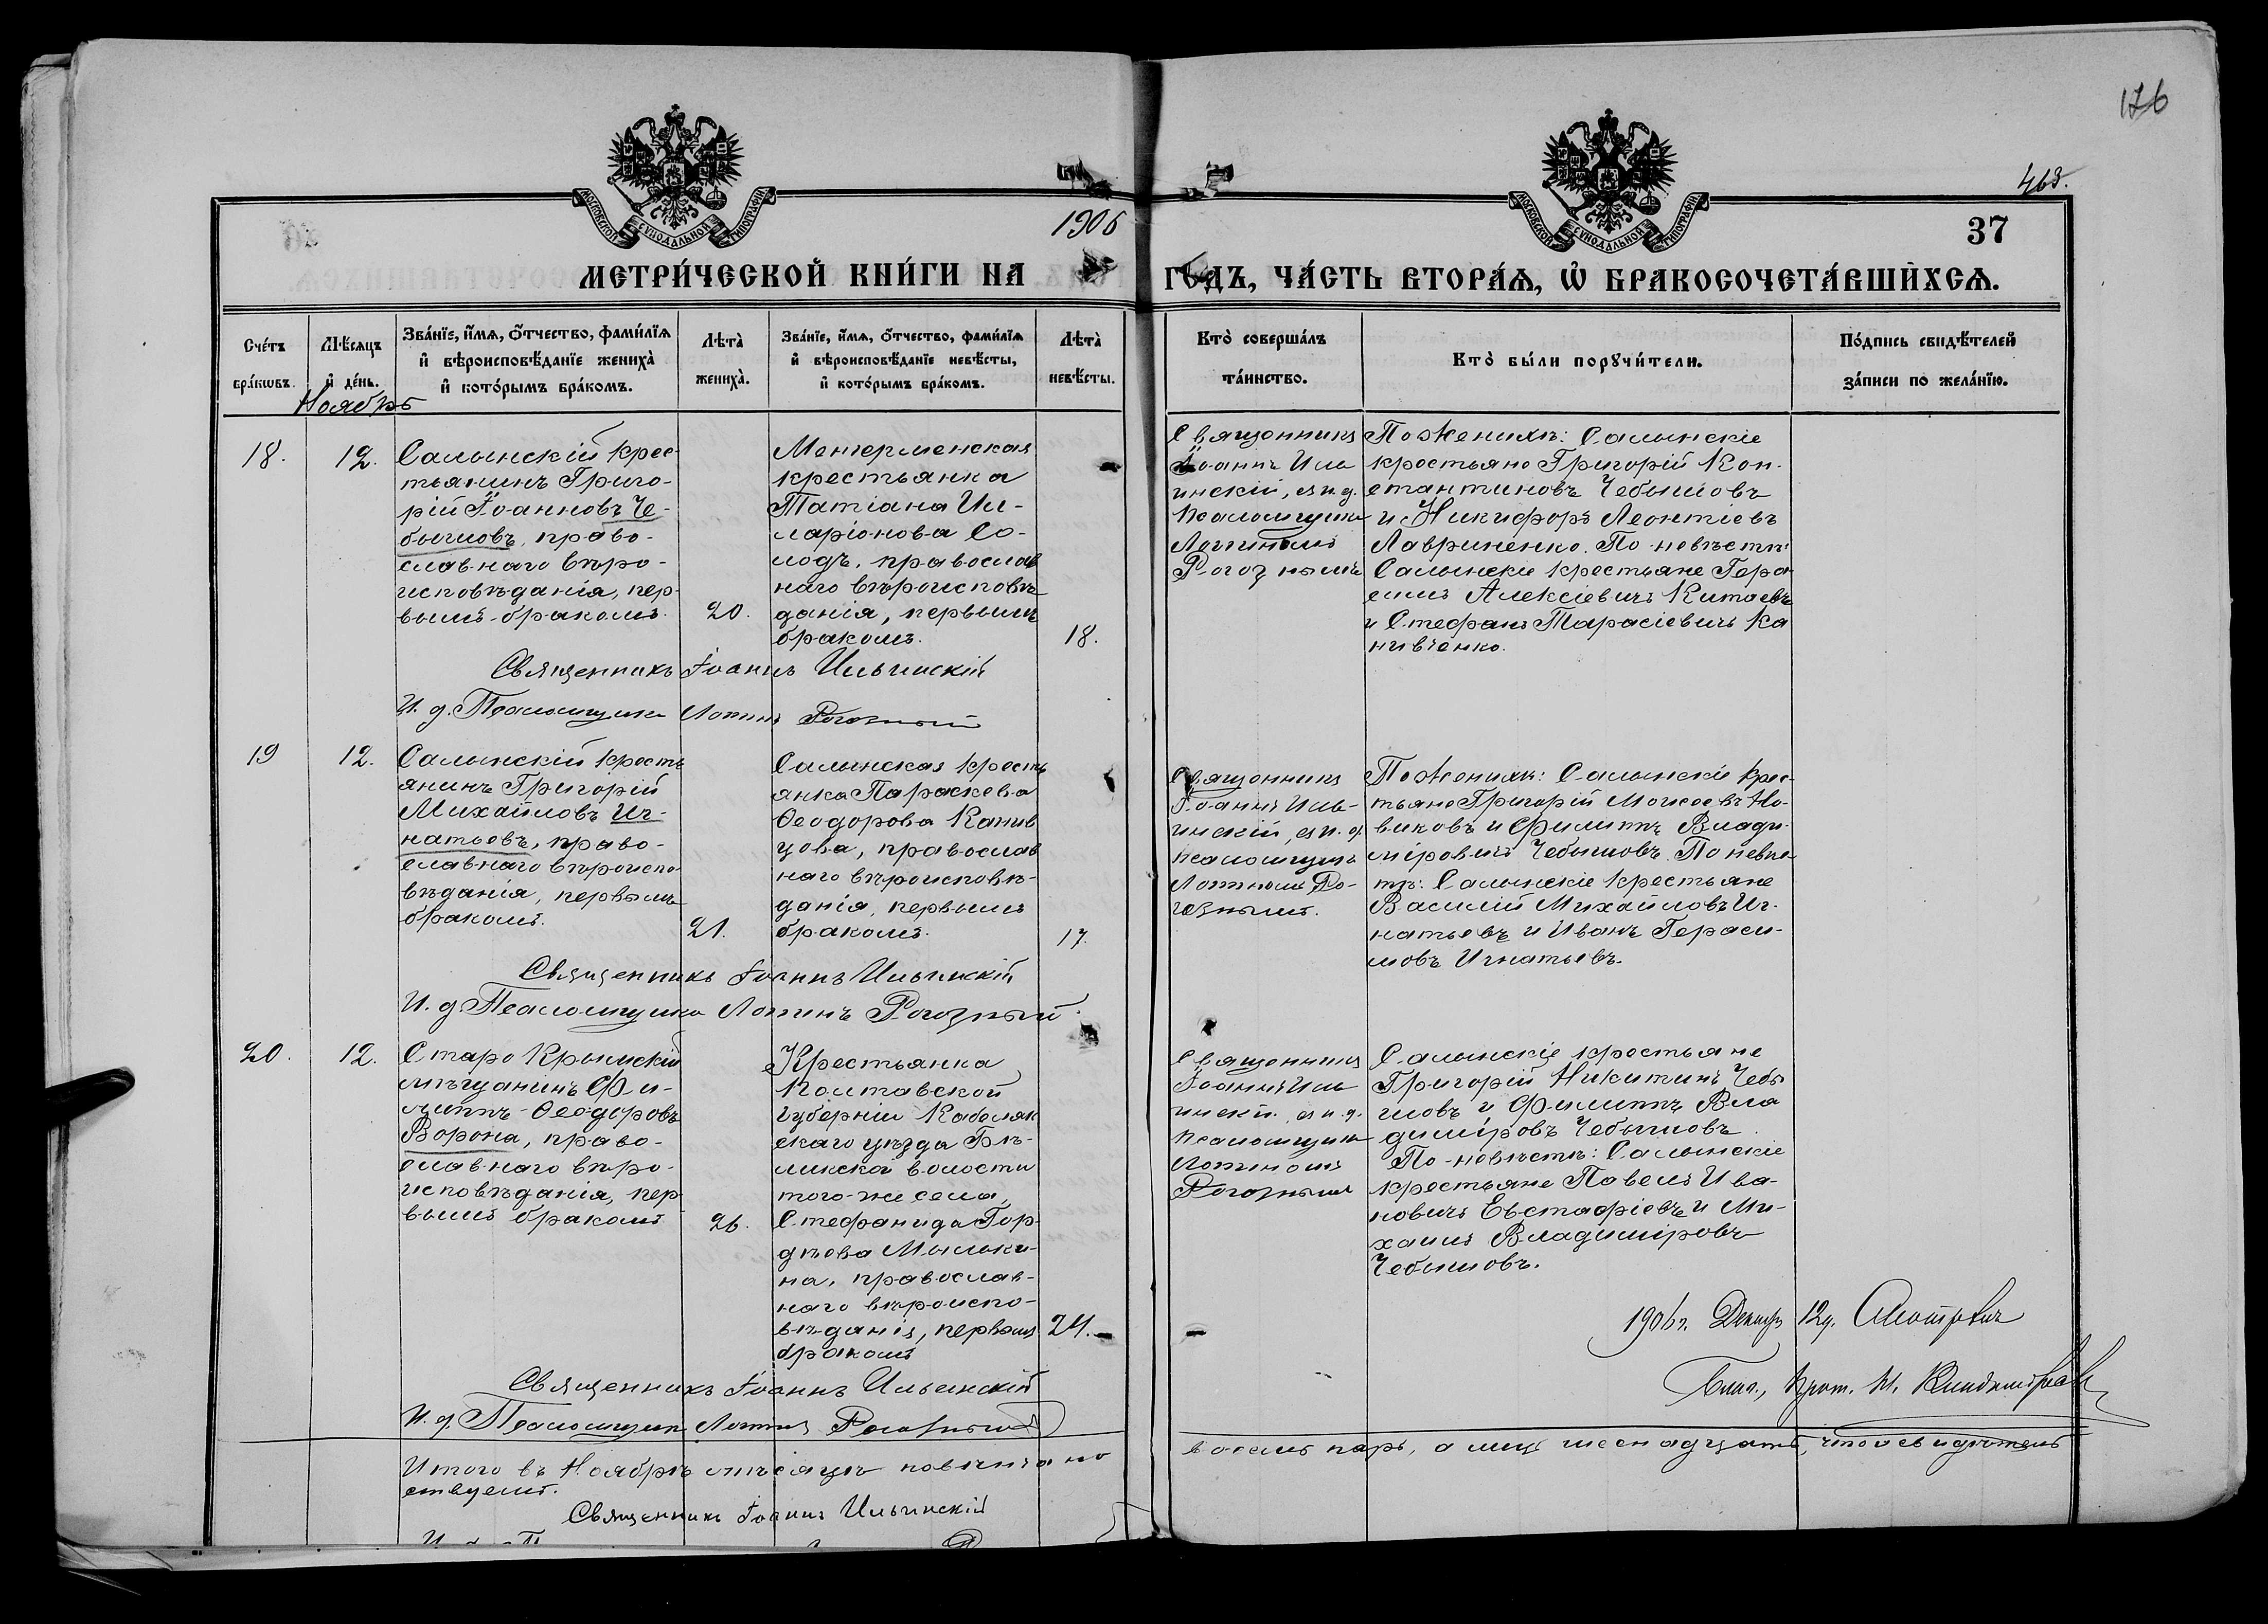 176
468.
МОСКОВСКОЙ СѴНОДАЛЬНОЙ ТИПОГРАФІИ
МОСКОВСКОЙ СѴНОДАЛЬНОЙ ТИПОГРАФІИ
1906
37
МЕТРИ́ЧЕСКОЙ КНИ́ГИ НА ГО́ДЪ, ЧА́СТЬ ВТОРА́Ѧ, Ѽ БРАКОСОЧЕТА́ВШИХСѦ.
Сче́тъ бра́кωвъ.
Мѣ́сяцъ и҆ де́нь.
Ноябрь
Зва́нїе, и҆́мѧ, ѻ҆́тчество, фами́лїѧ
и҆ вѣроисповѣ́данїе жениха̀
и҆ кото́рымъ бра́комъ.
Лѣта̀ жениха̀.
Зва́нїе, и҆́мѧ, ѻ҆́тчество, фами́лїѧ
и҆ вѣроисповѣ́данїе невѣ́сты,
и҆ кото́рымъ бра́комъ.
Лѣта̀ невѣ́сты.
Кто̀ соверша́лъ
та́инство.
Кто̀ бы́ли порꙋчи́тели.
По́дпись свидѣ́телей
за́писи по жела́нїю.
18.
12.
Салынскій крес-
тьянинъ Григо-
рій Іоанновъ Че-
бышовъ, право-
славнаго вѣро-
исповѣданія, пер-
вымъ бракомъ.
20.
крестьянка
Татіана Ил-
ларіонова Со-
лодъ, православ
наго вѣроисповѣ-
данія, первымъ
бракомъ.
18.
Священникъ
Іоаннъ Иль
инскій, съ и. д.
псаломщика
Логиномъ
Рогознымъ
По женихѣ: Салынскіе
крестьяне Григорій Кон-
стантиновъ Чебышовъ
и Никифоръ Леонтіевъ
Лавриненко. По невѣстѣ:
Салынскіе крестьяне Гера
симъ Алексіевичъ Китаевъ
и Стефанъ Тарасіевичъ Ка
нивченко.
Священникъ Іоаннъ Ильинскій
И. д. Псаломщика Логинъ Рогозный
19
12.
Салынскій кресть
янинъ Григорій
Михайловъ Иг-
натьевъ, право-
славнаго вѣроиспо-
вѣданія, первымъ
бракомъ.
21.
Салынская кресть
янка Параскева
Ѳеодорова Канив
цова, православ
наго вѣроисповѣ-
данія, первымъ
бракомъ.
17.
Священникъ
Іоаннъ Иль-
инскій, съ и. д.
псаломщика
Логиномъ Ро-
гознымъ.
По женихѣ: Салынскіе крес-
тьяне Григорій Моисеевъ Но-
виковъ и Филиппъ Влади-
міровичъ Чебышовъ. По невѣс-
тѣ: Салынскіе крестьяне
Василій Михайловъ Иг-
натьевъ и Иванъ Гераси-
мовъ Игнатьевъ.
Священникъ Іоаннъ Ильинскій
И. д. Псаломщика Логинъ Рогозный.
20.
12.
Старо Крымскій
мѣщанинъ Фи-
липпъ Ѳеодоровъ
Ворона, право-
славнаго вѣро-
исповѣданія, пер
вымъ бракомъ
26.
Крестьянка
Полтавской
губерніи Кобеляк
скаго уѣзда Бѣ-
ликской волости
того-же села,
Стефанида Гор-
дѣева
на, православ-
наго вѣроиспо-
вѣданія, первымъ
бракомъ
24.
Священникъ
Іоаннъ Иль
инскій, съ и. д.
псаломщика
Логиномъ
Рогознымъ
Салынскіе крестьяне
Григорій Никитинъ Чебы
шовъ и Филиппъ Вла
диміровъ Чебышовъ.
По-невѣстѣ: Салынскіе
крестьяне Павелъ Ива-
новичъ Евстафіевъ и Ми-
хаилъ Владиміровъ
Чебышовъ.
1906 г. Декабря 12 д. Смотрѣлъ
Благ., Прот.
Священникъ Іоаннъ Ильинскій
И. д. Псаломщика Логинъ Рогозный
Итого въ Ноябрѣ мѣсяцѣ повѣнчано восемь паръ, а лицъ шеснадцать, что и свидѣтель
ствуемъ.
Священникъ Іоаннъ Ильинскій